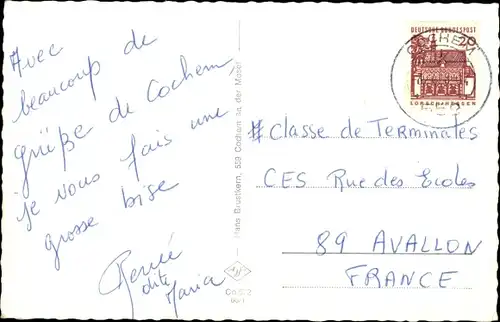 Avec
beaucoup de
grüße de Cochem,
je vous fais une
grosse bise
Renée
dite
Maria
Hans Brustkern, 559 Cochem an der Mosel
DEUTSCHE BUNDESPOST
20
COCHEM
LORSCH/HESSEN
#Classe de Terminales
CES Rue des Ecoles
89 AVALLON
FRANCE